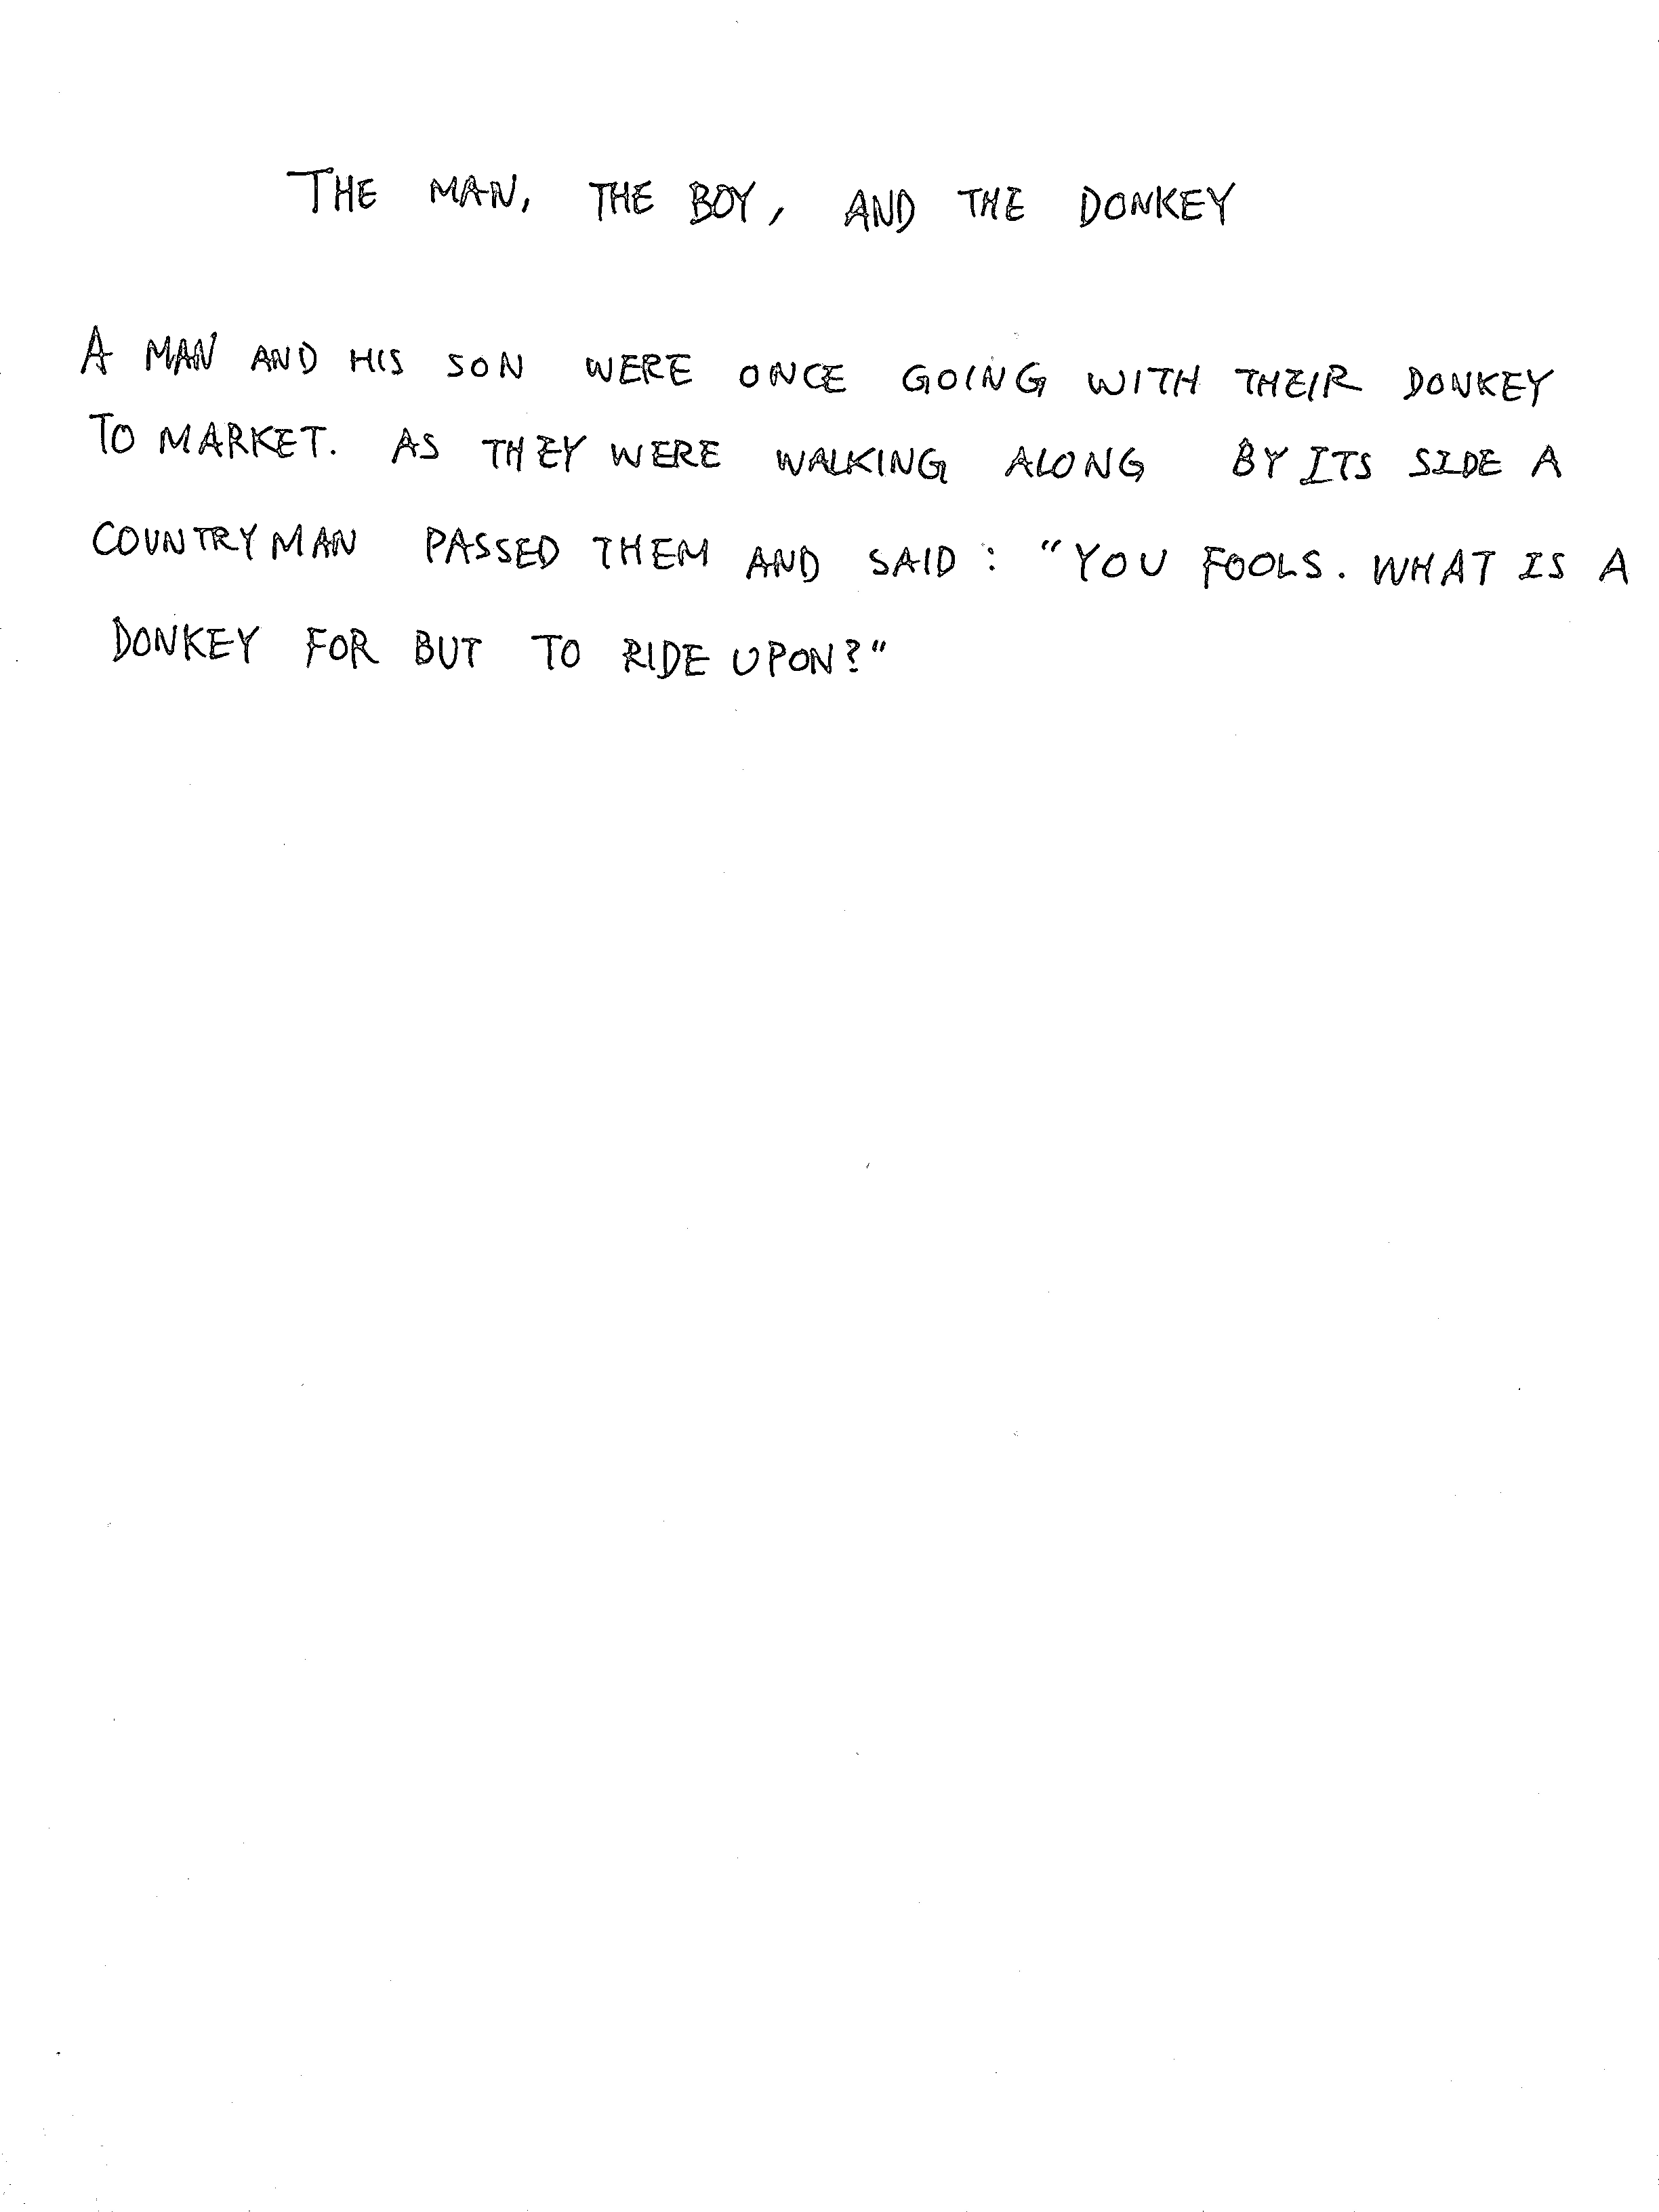 THE MAN, THE BOY, AND THE DONKEY
A MAN AND HIS SON WERE ONCE GOING WITH THEIR DONKEY
TO MARKET. AS THEY WERE WALKING ALONG BY ITS SIDE A
COUNTRYMAN PASSED THEM AND SAID: "YOU FOOLS. WHAT IS A
DONKEY FOR BUT TO RIDE UPON?"